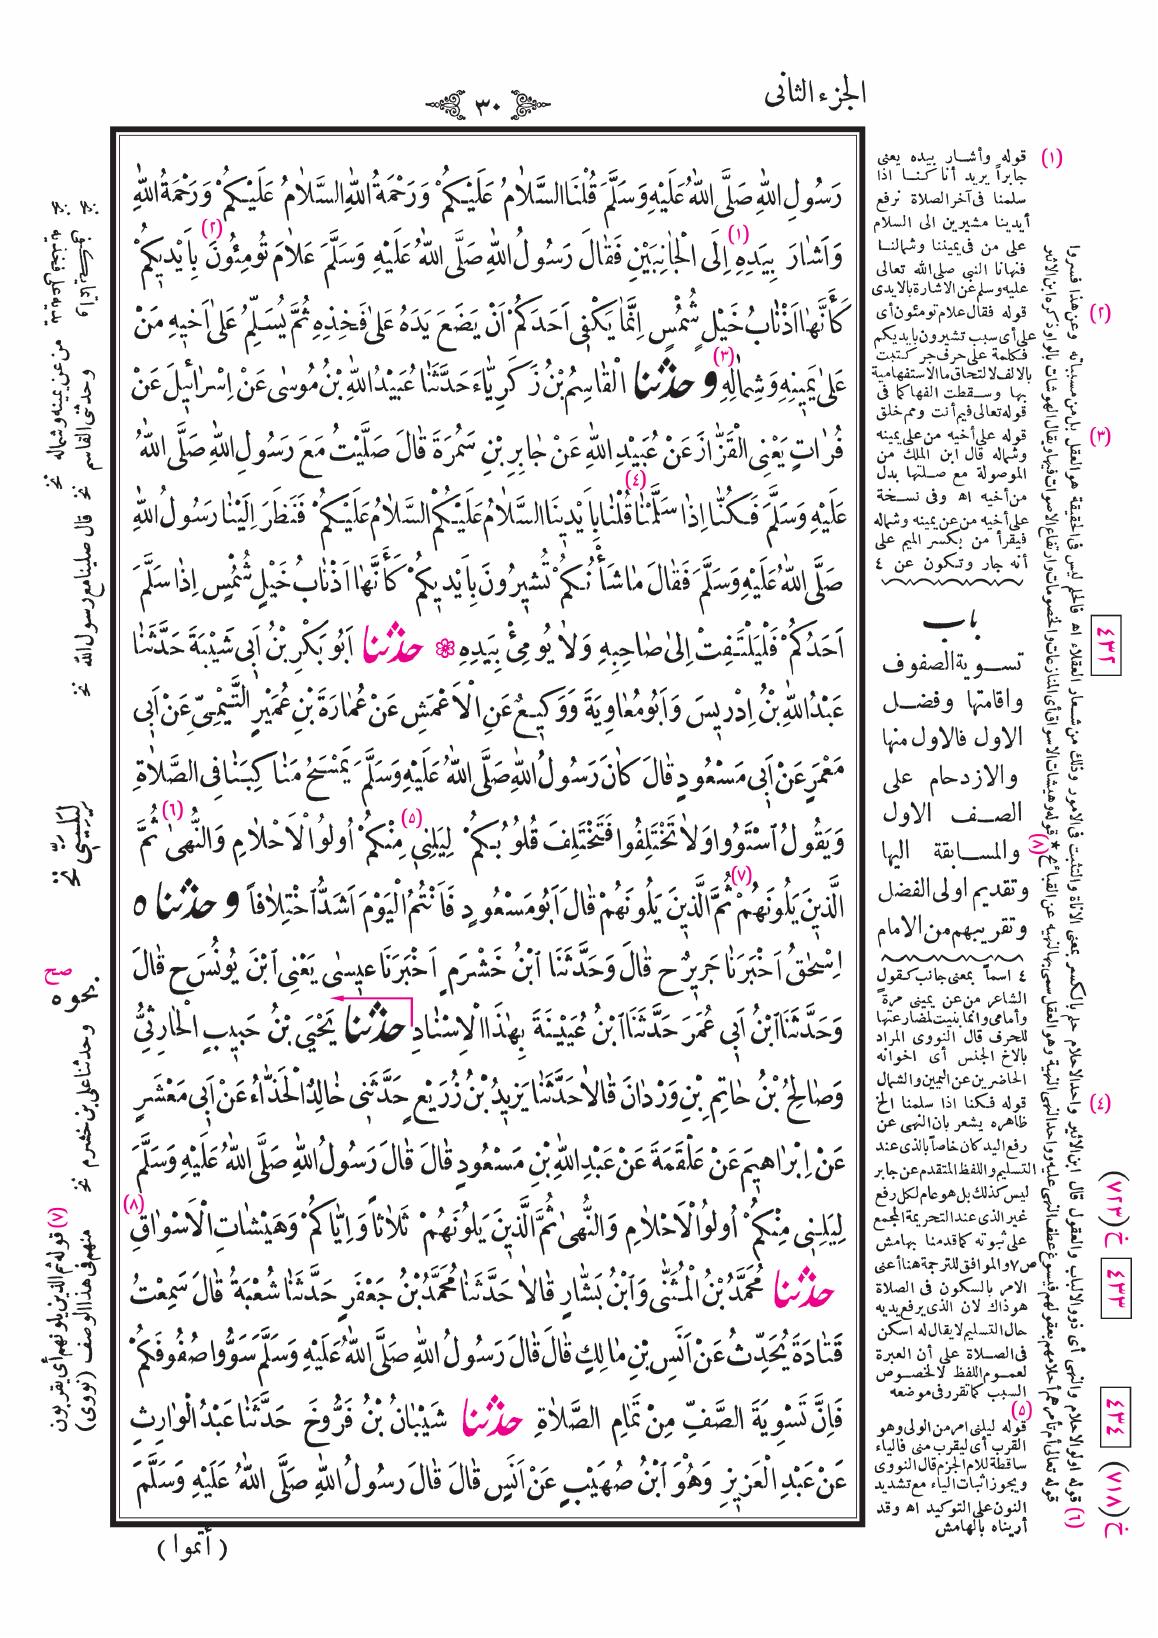 الجزء الثانى
٣٠
رَسُولِ اللهِ صَلَّى اللهُ عَلَيْهِ وَسَلَّمَ قُلْنَا السَّلَامُ عَلَيْكُمْ وَرَحْمَةُ اللهِ السَّلَامُ عَلَيْكُمْ وَرَحْمَةُ اللهِ
وَأَشَارَ بِيَدِهِ (١) إِلَى الْجَانِبَيْنِ فَقَالَ رَسُولُ اللهِ صَلَّى اللهُ عَلَيْهِ وَسَلَّمَ عَلَامَ تُومِئُونَ (٢) بِأَيْدِيكُمْ
كَأَنَّهَا أَذْنَابُ خَيْلٍ شُمْسٍ إِنَّمَا يَكْفِى أَحَدَكُمْ أَنْ يَضَعَ يَدَهُ عَلَى فَخِذِهِ ثُمَّ يُسَلِّمُ عَلَى أَخِيهِ مَنْ
عَلَى يَمِينِهِ وَشِمَالِهِ (٣) وحدثنا الْقَاسِمُ بْنُ زَكَرِيَّاءَ حَدَّثَنَا عُبَيْدُ اللهِ بْنُ مُوسَى عَنْ إِسْرَائِيلَ عَنْ
فُرَاتٍ يَعْنِى الْقَزَّازَ عَنْ عُبَيْدِ اللهِ عَنْ جَابِرِ بْنِ سَمُرَةَ قَالَ صَلَّيْتُ مَعَ رَسُولِ اللهِ صَلَّى اللهُ
عَلَيْهِ وَسَلَّمَ فَكُنَّا إِذَا سَلَّمْنَا (٤) قُلْنَا بِأَيْدِينَا السَّلَامُ عَلَيْكُمْ السَّلَامُ عَلَيْكُمْ فَنَظَرَ إِلَيْنَا رَسُولُ اللهِ
صَلَّى اللهُ عَلَيْهِ وَسَلَّمَ فَقَالَ مَا شَأْنُكُمْ تُشِيرُونَ بِأَيْدِيكُمْ كَأَنَّهَا أَذْنَابُ خَيْلٍ شُمْسٍ إِذَا سَلَّمَ
أَحَدُكُمْ فَلْيَلْتَفِتْ إِلَى صَاحِبِهِ وَلَا يُومِئْ بِيَدِهِ حدثنا أَبُو بَكْرِ بْنُ أَبِى شَيْبَةَ حَدَّثَنَا
عَبْدُ اللهِ بْنُ إِدْرِيسَ وَأَبُو مُعَاوِيَةَ وَوَكِيعٌ عَنِ الْأَعْمَشِ عَنْ عُمَارَةَ بْنِ عُمَيْرٍ التَّيْمِىِّ عَنْ أَبِى
مَعْمَرٍ عَنْ أَبِى مَسْعُودٍ قَالَ كَانَ رَسُولُ اللهِ صَلَّى اللهُ عَلَيْهِ وَسَلَّمَ يَمْسَحُ مَنَاكِبَنَا فِى الصَّلَاةِ
وَيَقُولُ اسْتَوُوا وَلَا تَخْتَلِفُوا فَتَخْتَلِفَ قُلُوبُكُمْ لِيَلِنِى (٥) مِنْكُمْ أُولُو الْأَحْلَامِ وَالنُّهَى (٦) ثُمَّ
الَّذِينَ يَلُونَهُمْ (٧) ثُمَّ الَّذِينَ يَلُونَهُمْ قَالَ أَبُو مَسْعُودٍ فَأَنْتُمُ الْيَوْمَ أَشَدُّ اخْتِلَافاً وحدثنا ٥
إِسْحٰقُ أَخْبَرَنَا جَرِيرٌ ح قَالَ وَحَدَّثَنَا ابْنُ خَشْرَمٍ أَخْبَرَنَا عِيسَى يَعْنِى ابْنَ يُونُسَ ح قَالَ
وَحَدَّثَنَا ابْنُ أَبِى عُمَرَ حَدَّثَنَا ابْنُ عُيَيْنَةَ بِهٰذَا الْإِسْنَادِ حدثنا يَحْيَى بْنُ حَبِيبٍ الْحَارِثِىُّ
وَصَالِحُ بْنُ حَاتِمِ بْنِ وَرْدَانَ قَالَا حَدَّثَنَا يَزِيدُ بْنُ زُرَيْعٍ حَدَّثَنِى خَالِدٌ الْحَذَّاءُ عَنْ أَبِى مَعْشَرٍ
عَنْ إِبْرَاهِيمَ عَنْ عَلْقَمَةَ عَنْ عَبْدِ اللهِ بْنِ مَسْعُودٍ قَالَ قَالَ رَسُولُ اللهِ صَلَّى اللهُ عَلَيْهِ وَسَلَّمَ
لِيَلِنِى مِنْكُمْ أُولُو الْأَحْلَامِ وَالنُّهَى ثُمَّ الَّذِينَ يَلُونَهُمْ ثَلَاثاً وَإِيَّاكُمْ وَهَيْشَاتِ الْأَسْوَاقِ (٨)
حدثنا مُحَمَّدُ بْنُ الْمُثَنَّى وَابْنُ بَشَّارٍ قَالَا حَدَّثَنَا مُحَمَّدُ بْنُ جَعْفَرٍ حَدَّثَنَا شُعْبَةُ قَالَ سَمِعْتُ
قَتَادَةَ يُحَدِّثُ عَنْ أَنَسِ بْنِ مَالِكٍ قَالَ قَالَ رَسُولُ اللهِ صَلَّى اللهُ عَلَيْهِ وَسَلَّمَ سَوُّوا صُفُوفَكُمْ
فَإِنَّ تَسْوِيَةَ الصَّفِّ مِنْ تَمَامِ الصَّلَاةِ حدثنا شَيْبَانُ بْنُ فَرُّوخَ حَدَّثَنَا عَبْدُ الْوَارِثِ
عَنْ عَبْدِ الْعَزِيزِ وَهُوَ ابْنُ صُهَيْبٍ عَنْ أَنَسٍ قَالَ قَالَ رَسُولُ اللهِ صَلَّى اللهُ عَلَيْهِ وَسَلَّمَ
( أتموا )
(١) قوله وأشار بيده يعنى
جابراً يريد أنا كنا اذا
سلمنا فى آخر الصلاة نرفع
أيدينا مشيرين الى السلام
على من فى يميننا وشمالنا
فنهانا النبى صلى الله تعالى
عليه وسلم عن الاشارة بالايدى
(٢) قوله فقال علام تومئون أى
على أى سبب تشيرون بايديكم
فكلمة على حرف جر كتبت
بالالف لالتحاق ما الاستفهامية
بها وسقطت الفها كما فى
قوله تعالى فيم أنت ومم خلق
(٣) قوله على أخيه من على يمينه
وشماله قال ابن الملك من
الموصولة مع صلتها بدل
من أخيه اه وفى نسخة
على أخيه من عن يمينه وشماله
فيقرأ من بكسر الميم على
أنه جار وتكون عن ٤
باب
تسوية الصفوف
واقامتها وفضل
الاول فالاول منها
والازدحام على
الصف الاول
والمسابقة اليها
وتقديم اولى الفضل
وتقريبهم من الامام
٤ اسماً بمعنى جانب كقول
الشاعر من عن يمينى مرة
وأمامى وانما بنيت لمضارعتها
للحرف قال النووى المراد
بالاخ الجنس أى اخوانه
الحاضرين عن اليمين والشمال
(٤) قوله فكنا اذا سلمنا الخ
ظاهره يشعر بان النهى عن
رفع اليد كان خاصاً بالذى عند
التسليم واللفظ المتقدم عن جابر
ليس كذلك بل هو عام لكل رفع
غير الذى عند التحريمة المجمع
على ثبوته كما قدمنا بهامش
ص٧ والموافق للترجمة هنا أعنى
الامر بالسكون فى الصلاة
هو ذاك لان الذى يرفع يديه
حال التسليم لا يقال له اسكن
فى الصلاة على أن العبرة
لعموم اللفظ لا لخصوص
السبب كما تقرر فى موضعه
(٥) قوله ليلنى امر من الولى وهو
القرب أى ليقرب منى فالياء
ساقطة للام الجزم قال النووى
ويجوز اثبات الياء مع تشديد
النون على التوكيد اه وقد
أريناه بالهامش
(٦) قوله اولو الاحلام والنهى أى ذوو الالباب والعقول قال ابن الاثير واحد الاحلام حلم بالكسر بمعنى الاناة والتثبت فى الامور وذلك من شعار العقلاء اه فالحلم ليس فى الحقيقة هو العقل بل من مسبباته وعن هذا فسروا
قوله تعالى أم تأمرهم أحلامهم بعقولهم فيسوغ عطف النهى عليه وواحد النهى النهية وهو العقل سمى بها لنهيه عن القبائح * (٨) قوله وهيشات الاسواق أى المنازعات والخصومات وارتفاع الاصوات فيها ويقال الهوشات بالواو ذكره ابن الاثير
٤٣٢
خ (٧٢٣)
٤٣٣
٤٣٤
خ (٧١٨)
يديه على فخذيه نخ
وانما يكفى نخ
من عن يمينه وشماله نخ
وحدثنى القاسم نخ
قال صلينا مع رسول الله نخ
لِيَلِيَنِّى نخ
صح
بنحوه
وحدثنا على بن خشرم نخ
(٧) قوله ثم الذين يلونهم أى يقربون
منهم فى هذا الوصف (نووى)